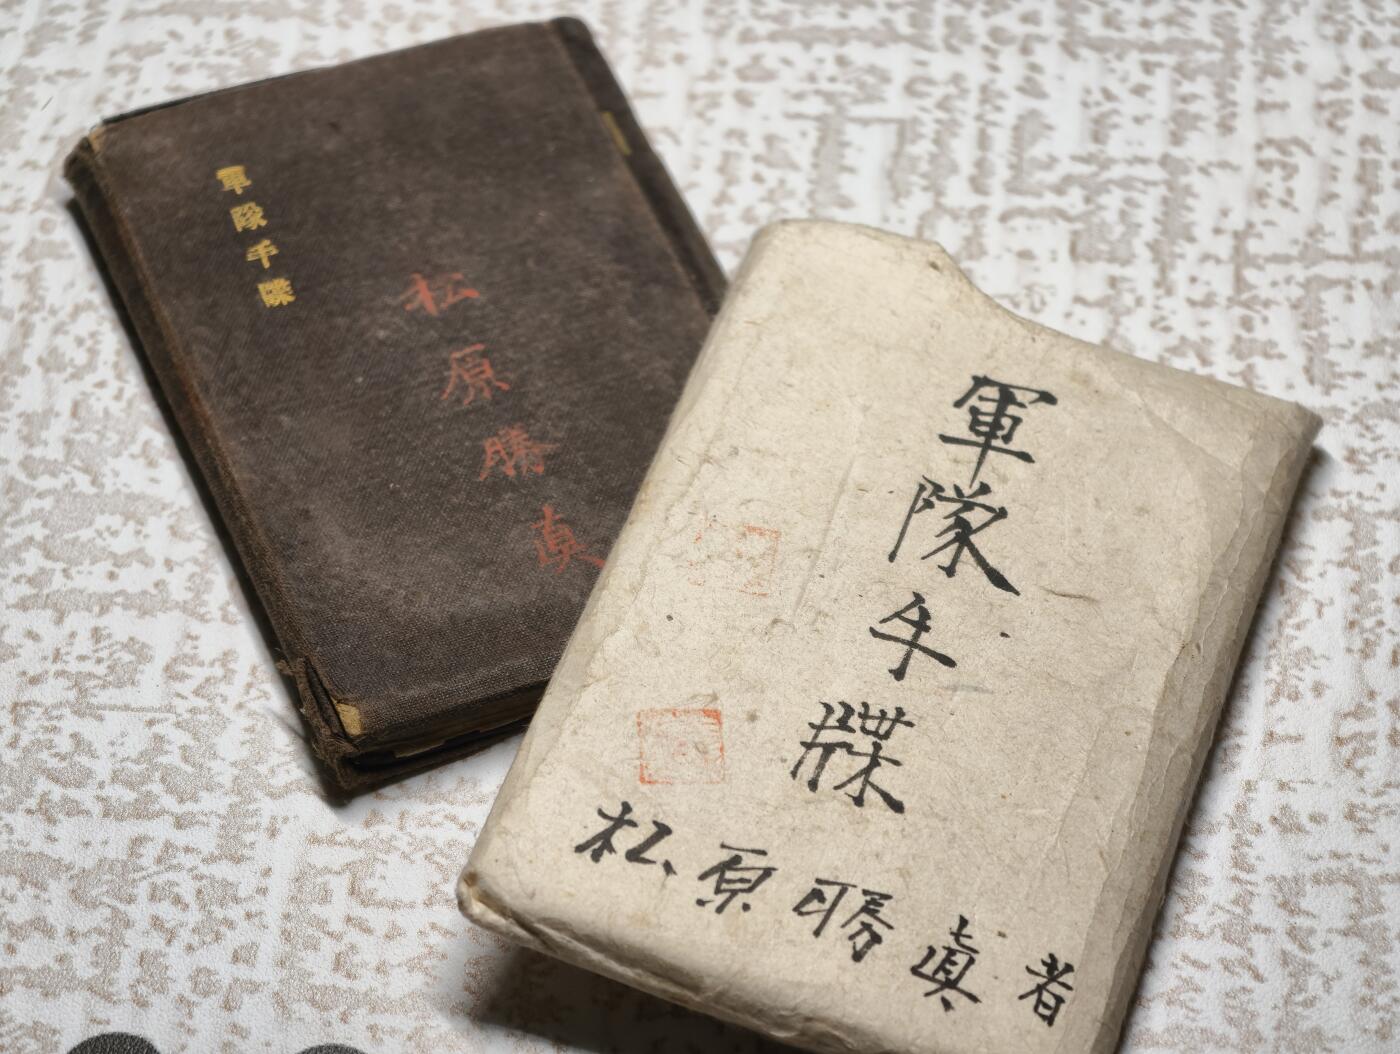 軍隊手牒
松原勝眞
軍隊手牒
松原勝眞者